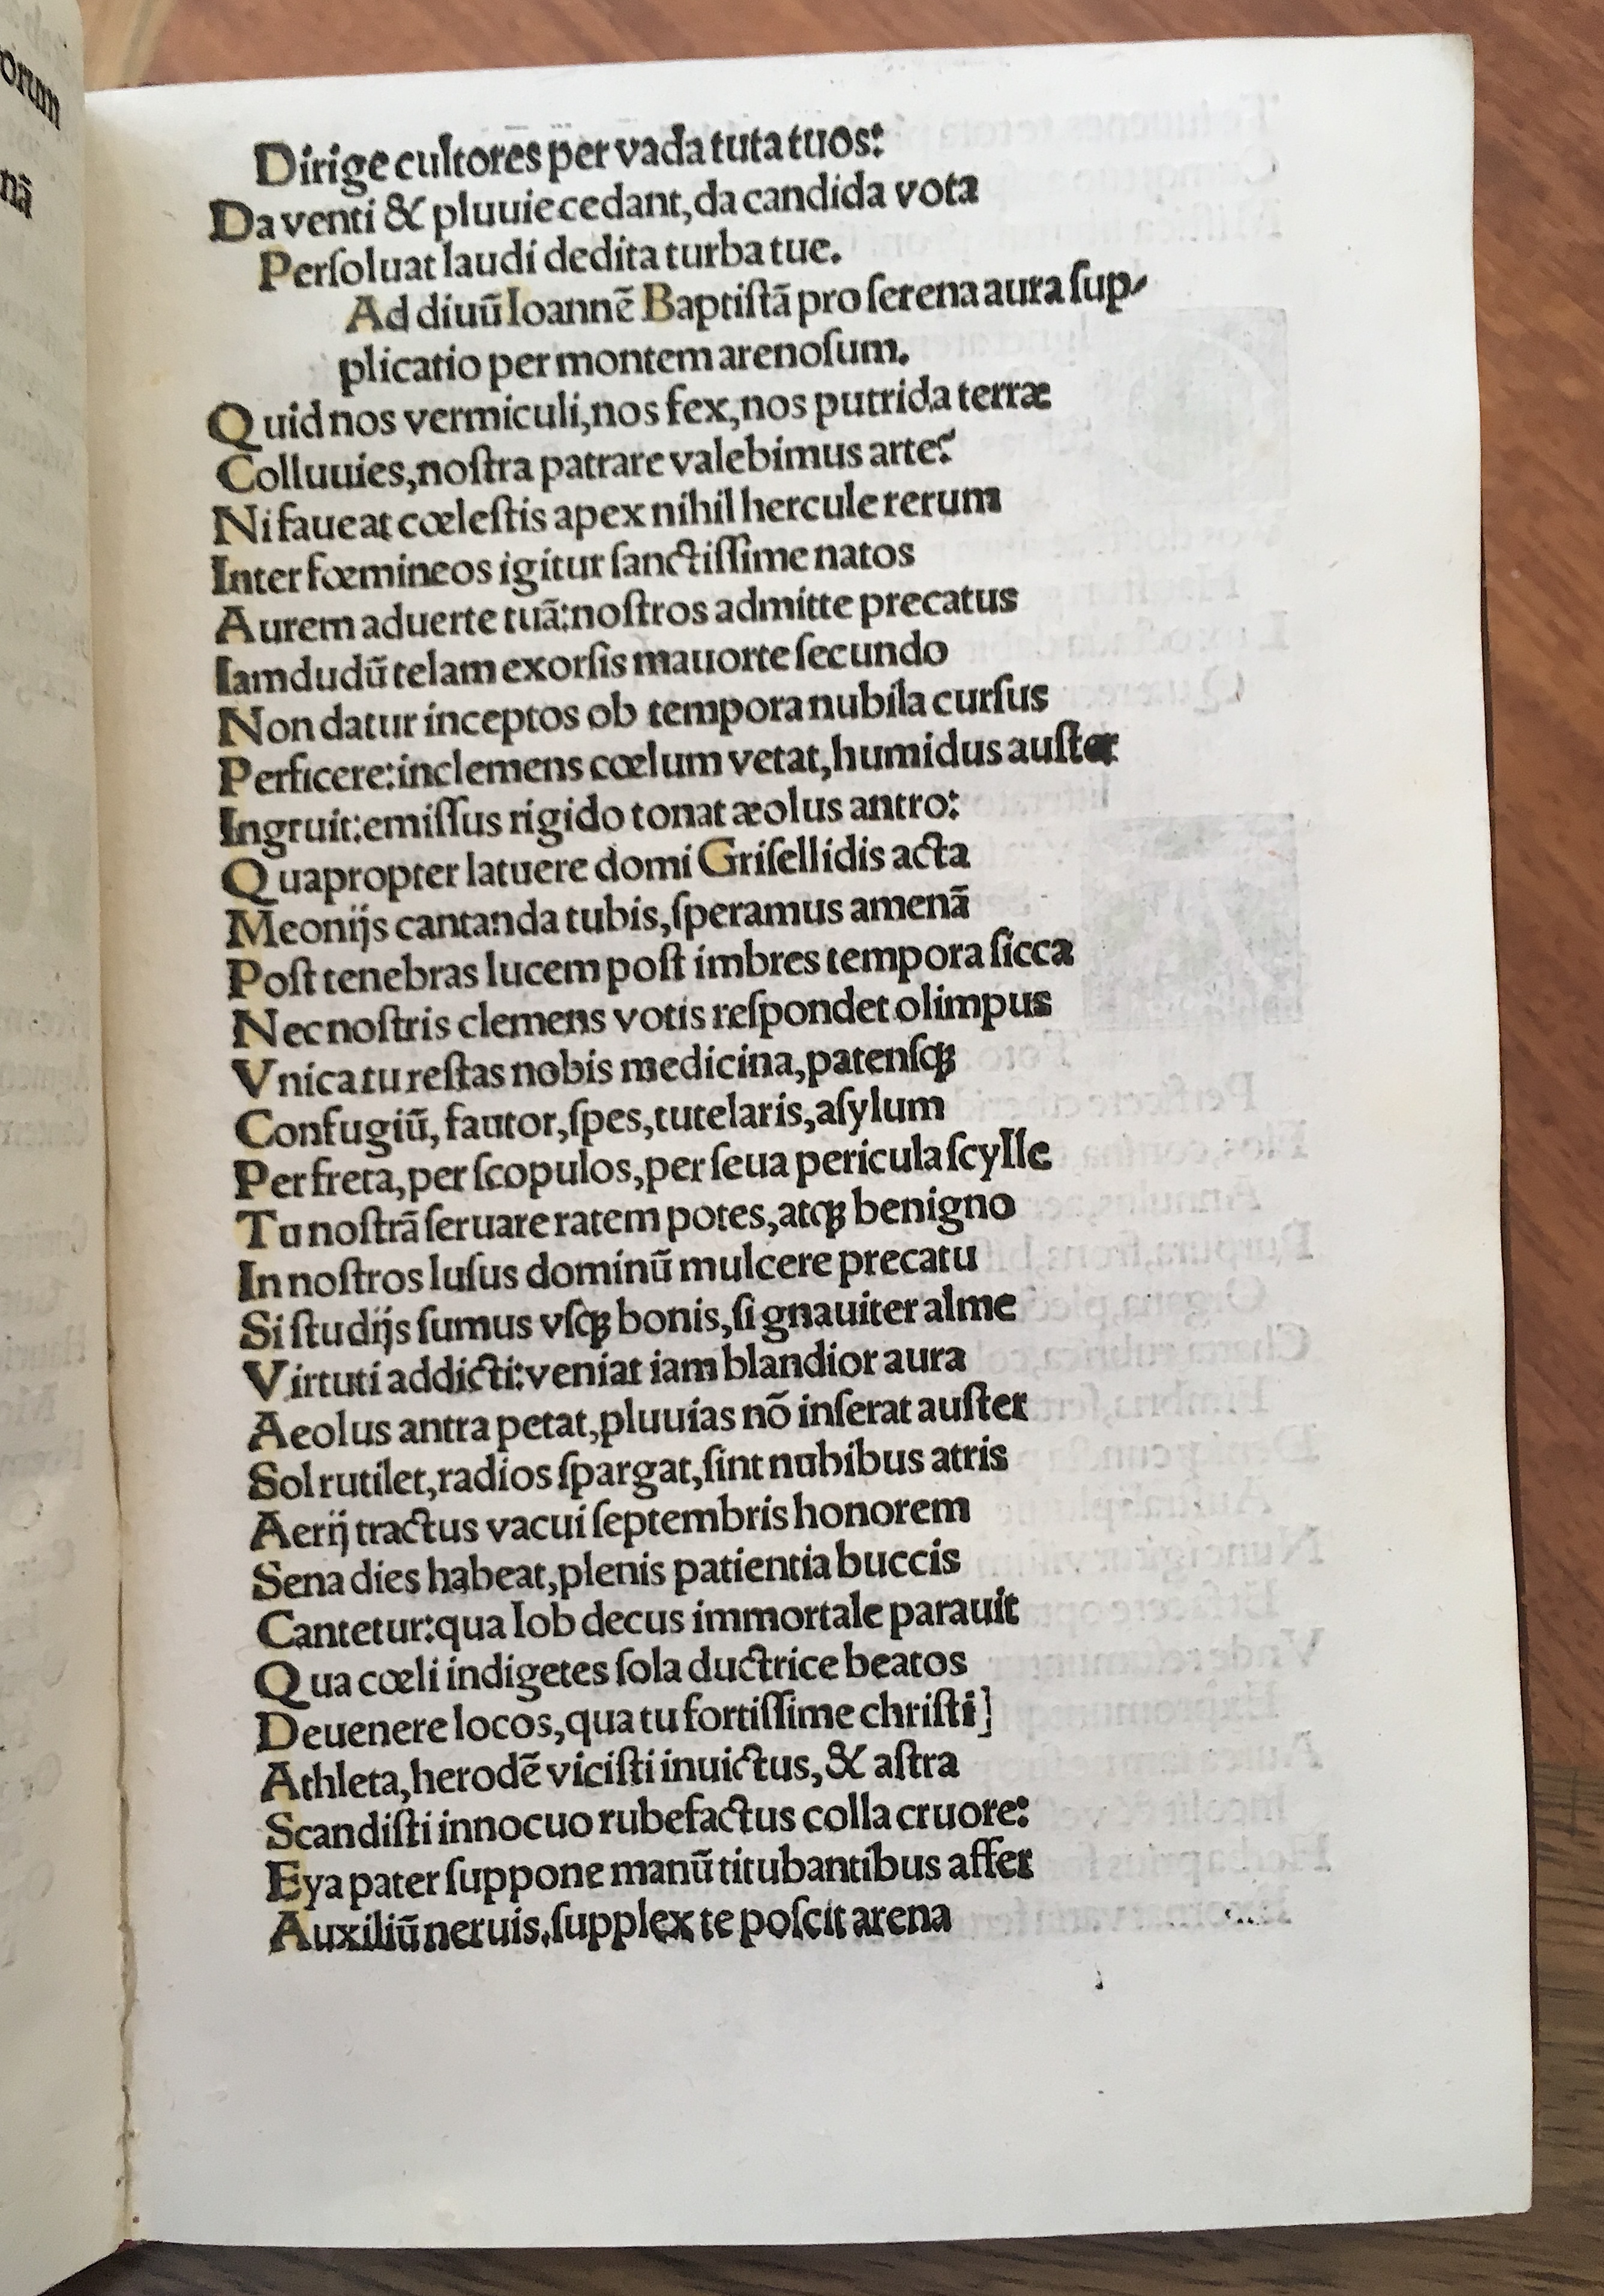 Dirige cultores per vada tuta tuos:
Da venti & pluuie cedant, da candida vota
Perſoluat laudi dedita turba tue.
Ad diuū Ioannē Baptiſtā pro ſerena aura ſup-
plicatio per montem arenoſum.
Quid nos vermiculi, nos fex, nos putrida terræ
Colluuies, noſtra patrare valebimus arte?
Ni faueat cœleſtis apex nihil hercule rerum
Inter fœmineos igitur ſanctiſſime natos
Aurem aduerte tuā: noſtros admitte precatus
Iamdudū telam exorſis mauorte ſecundo
Non datur inceptos ob tempora nubila curſus
Perficere: inclemens cœlum vetat, humidus auſter
Ingruit: emiſſus rigido tonat æolus antro:
Quapropter latuere domi Griſellidis acta
Meonijs cantanda tubis, ſperamus amenā
Poſt tenebras lucem poſt imbres tempora ſicca
Nec noſtris clemens votis reſpondet olimpus
Vnica tu reſtas nobis medicina, patenſqꝫ
Confugiū, fautor, ſpes, tutelaris, aſylum
Per freta, per ſcopulos, per ſeua pericula ſcylle
Tu noſtrā ſeruare ratem potes, atqꝫ benigno
In noſtros luſus dominū mulcere precatu
Si ſtudijs ſumus vſqꝫ bonis, ſi gnauiter alme
Virtuti addicti: veniat iam blandior aura
Aeolus antra petat, pluuias nō inferat auſter
Sol rutilet, radios ſpargat, ſint nubibus atris
Aerij tractus vacui ſeptembris honorem
Sena dies habeat, plenis patientia buccis
Cantetur: qua Iob decus immortale parauit
Qua cœli indigetes ſola ductrice beatos
Deuenere locos, qua tu fortiſſime chriſti]
Athleta, herodē viciſti inuictus, & aſtra
Scandiſti innocuo rubefactus colla cruore:
Eya pater ſuppone manū titubantibus affer
Auxiliū neruis, ſupplex te poſcit arena